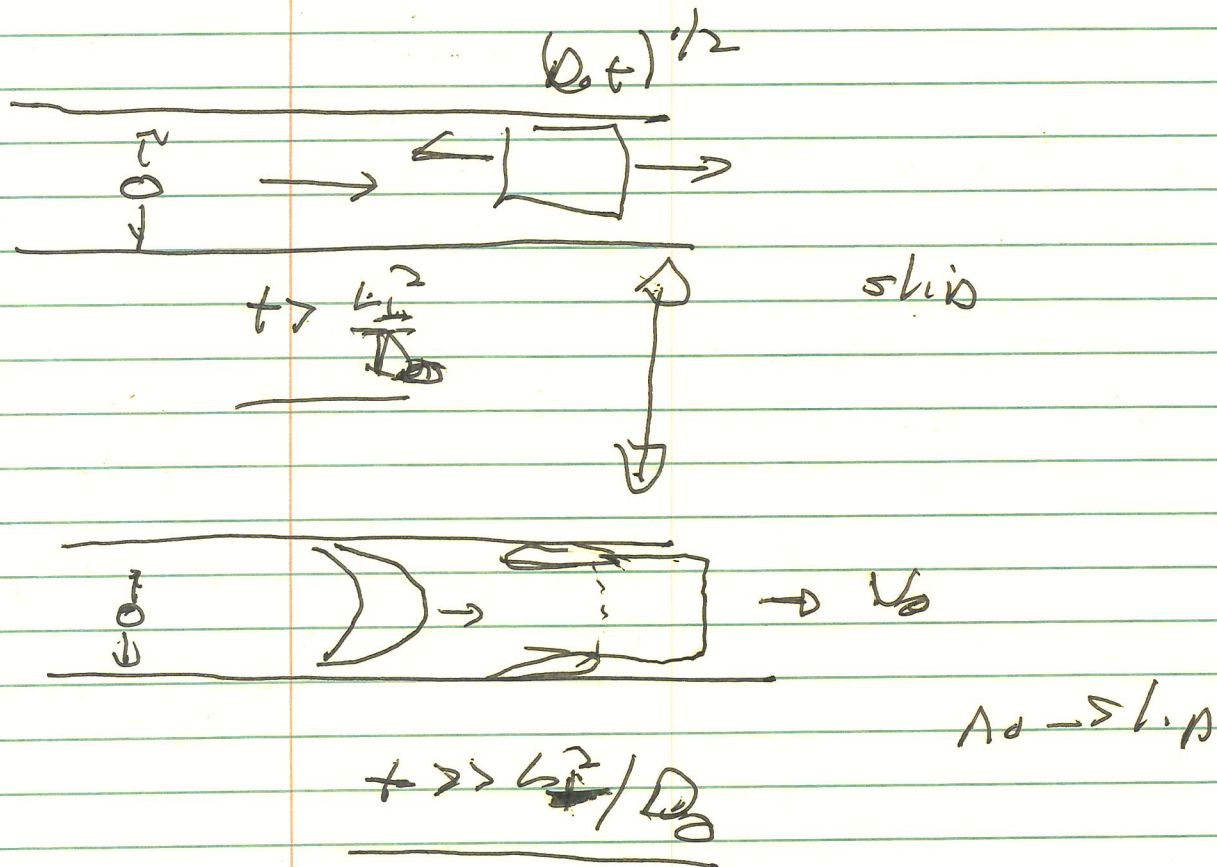 (D₀t)^1/2
slip
t > L⊥²/D₀
→ V₀
no-slip
t >> L⊥²/D₀